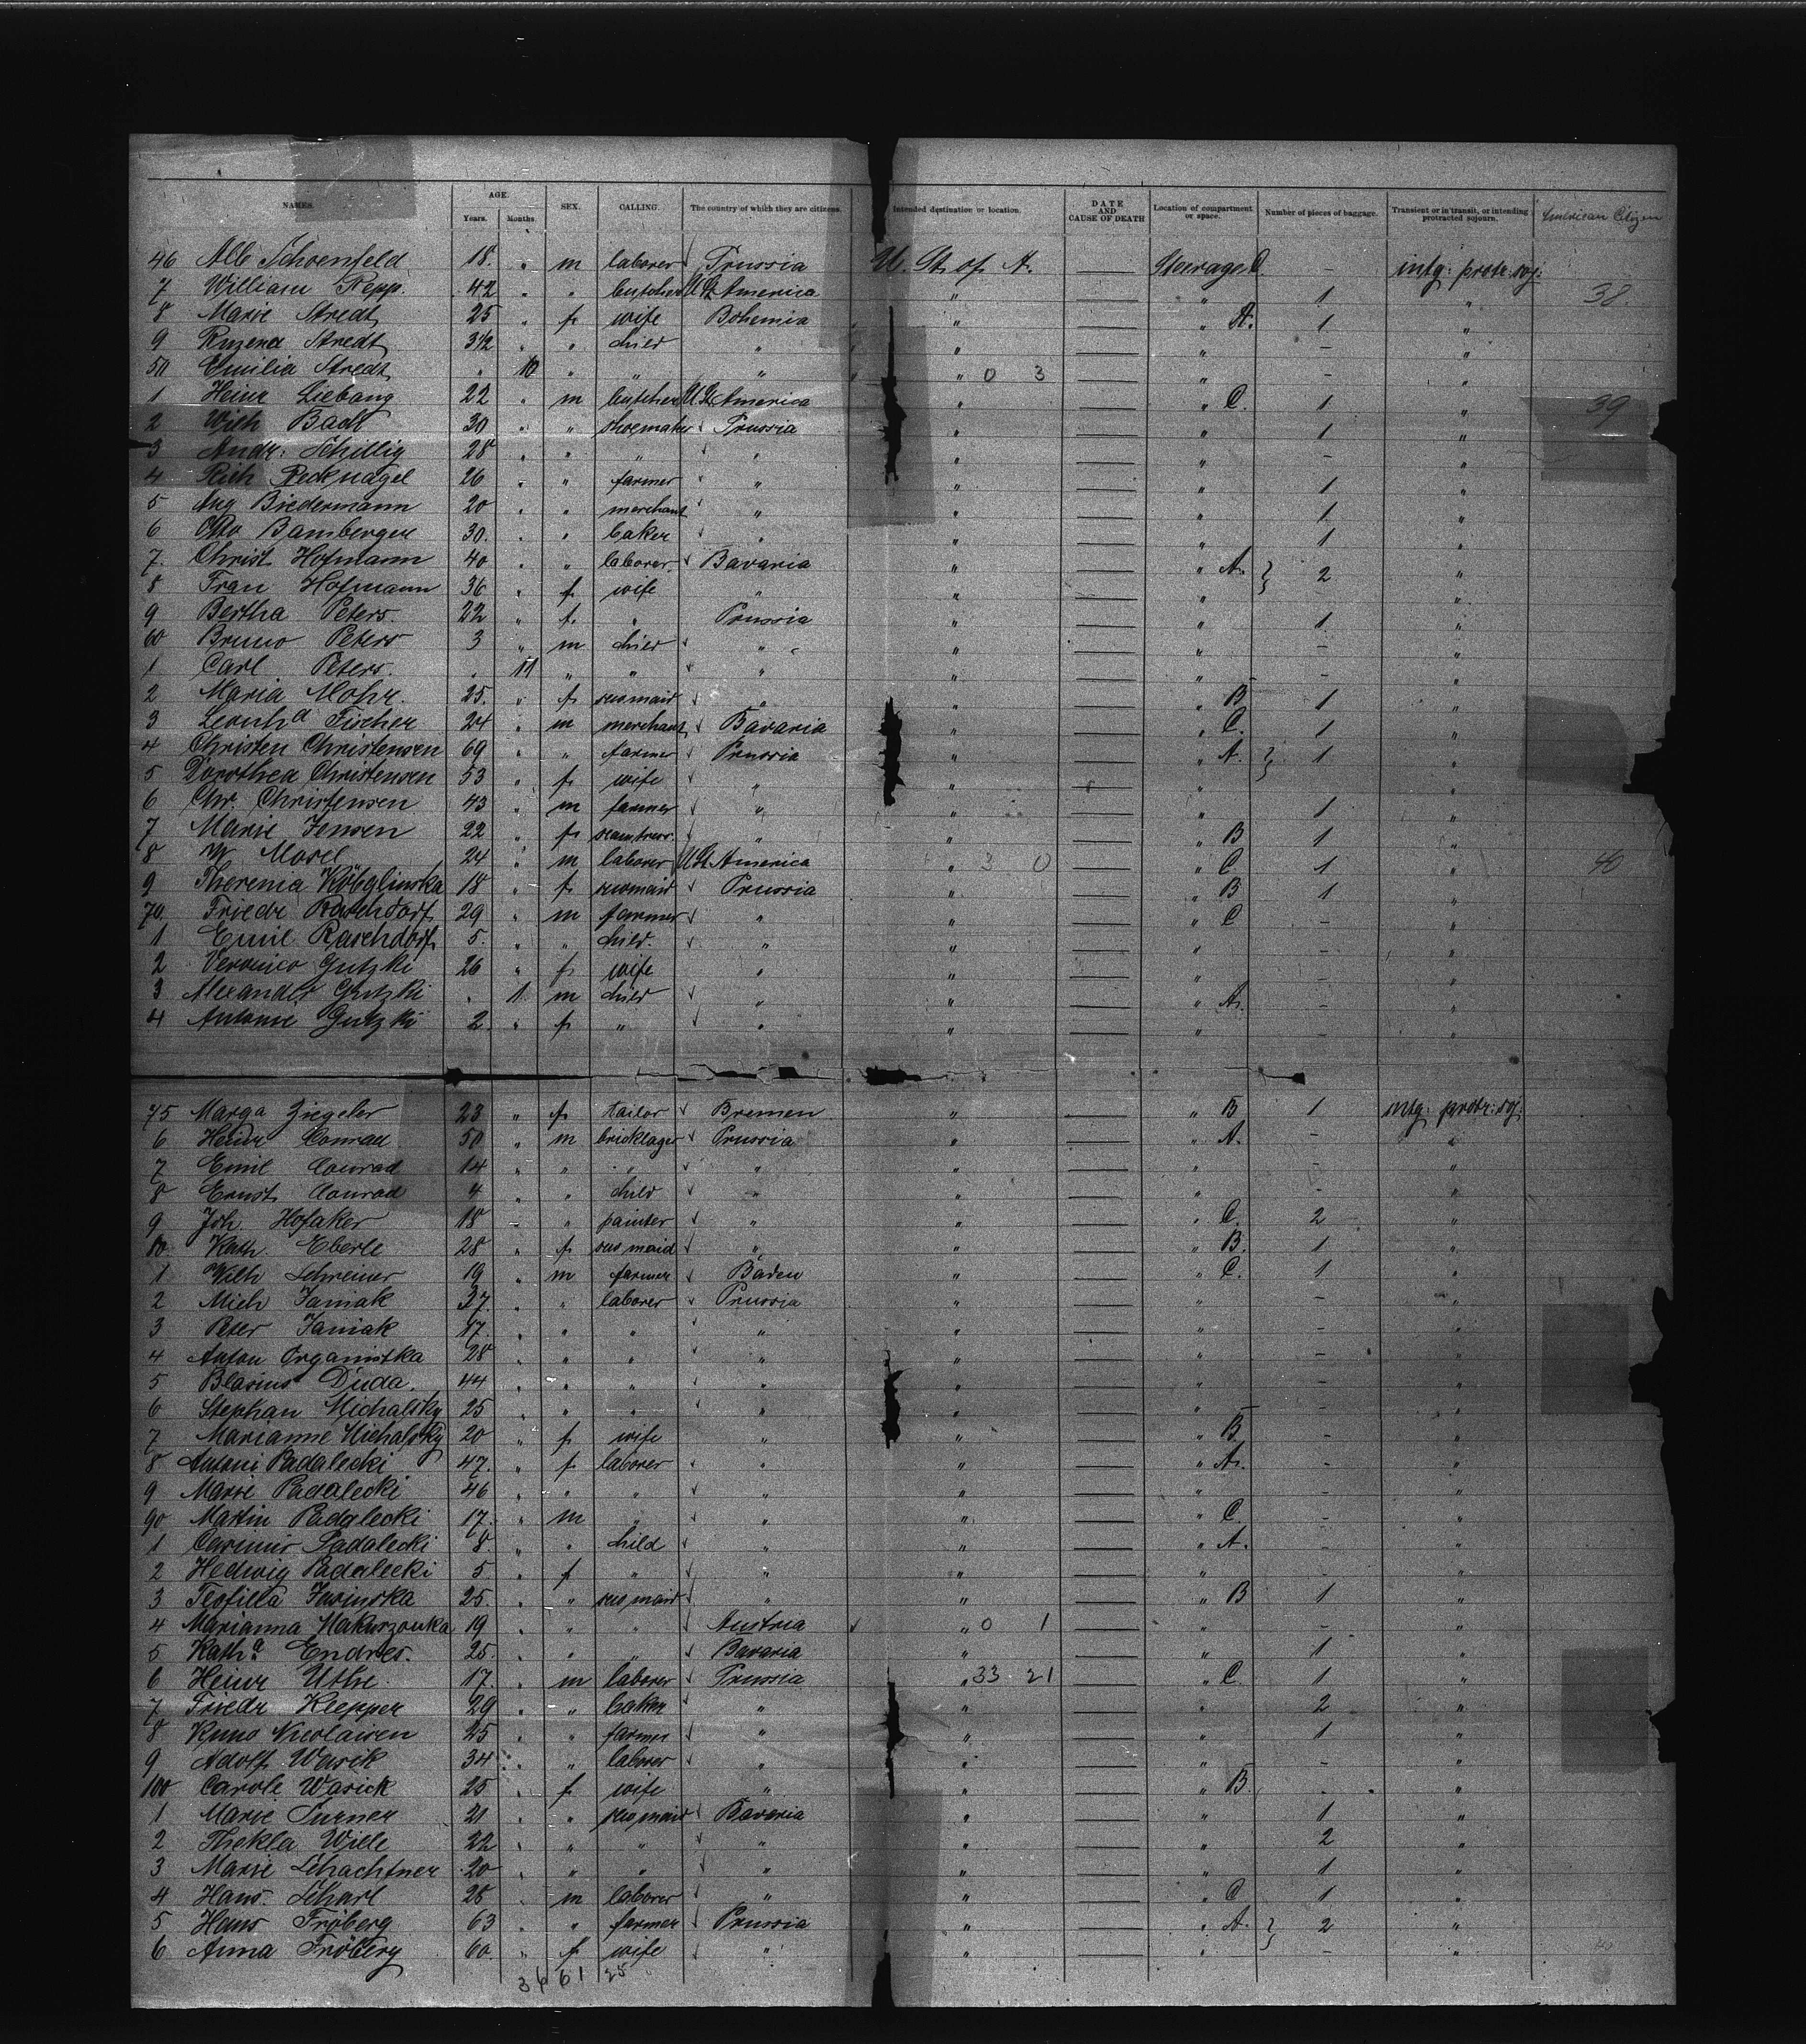 NAMES. AGE. Years. Months. SEX. CALLING. The country of which they are citizens. Intended destination or location. DATE AND CAUSE OF DEATH Location of compartment or space. Number of pieces of baggage. Transient or in transit, or intending protracted sojourn. American Citizen
46 Alb Schoenfeld 18 " m laborer Prussia U. St. of A. — Steerage C. - intg: protr: soj:
7 William Repp. 42 " " butcher U St America " — " 1 " 38.
8 Marie Stredt 25 " f wife Bohemia " — " A. 1 "
9 Ruzena Stredt 3 1/2 " " child " " — " - "
50 Emilia Stredt " 10 " " " " 0 3 — " - "
1 Heinr Liebang 22 " m butcher U St America " — " C. 1 " 39
2 Wilh Bach 30 " " shoemaker Prussia " — " 1 "
3 Andr: Schillig 28 " " " " " — " - "
4 Rich Recknagel 26 " " farmer " " — " 1 "
5 Aug Biedermann 20 " " merchant " " — " 1 "
6 Otto Bamberger 30. " " baker " " — " 1 "
7. Christ Hofmann 40 " " laborer Bavaria " — " A. } 2 "
8 Fran Hofmann 36 " f wife " " — " "
9 Bertha Peters. 22 " f. " Prussia " — " 1 "
60 Bruno Peters 3 " m child " " — " - "
1 Carl Peters. " 11 " " " " — " - "
2 Maria Mohr. 25. " f servmaid " " — " B 1 "
3 Leonhd Fischer 24 " m merchant Bavaria " — " C. 1 "
4 Christen Christensen 69 " " farmer Prussia " — " A. } 1 "
5 Dorothea Christensen 53 " f wife " " — " "
6 Chr. Christensen 43 " m farmer " " — " 1 "
7 Marie Jensen 22 " f seamtress. " " — " B 1 "
8 W. Mosel 24 " m laborer U St America " 3 0 — " C 1 " 40
9 18 " f servmaid Prussia " — " B 1 "
70. Friedr Raschdorf 29 " m farmer " " — " C - "
1 Emil Raschdorf 5. " " child. " " — " - "
2 Veronica Gutzki 26 " f wife " " — " - "
3 Alexander Gutzki " 1. m child " " — " A. - "
4 Antonie Gutzki 2 " f " " " — " - "
75 Marga Ziegeler 23 " f tailor Bremen " — " B 1 intg: protr: soj:
6 Heinr Conrad 50 " m bricklager Prussia " — " A. - "
7 Emil Conrad 14 " " " " " — " - "
8 Ernst Conrad 4 " " child " " — " - "
9 Joh Hofaker 18 " " painter " " — " C. 2 "
80. Kath. Eberle 28 " f serv maid " " — " B. 1 "
1 Wilh Schreiner 19 " m farmer Baden " — " C. 1 "
2 Mich Janiak 37. " " laborer Prussia " — " - "
3 Peter Janiak 17. " " " " " — " - "
4 Anton Organistka 28 " " " " " — " - "
5 Blasius Duda. 44 " " " " " — " - "
6 Stephan Michalsky 25 " " " " " — " - "
7 Marianne Michalsky 20 " f wife " " — " B. - "
8 Antoni Padalecki 47. " f laborer " " — " A. - "
9 Marie Padalecki 46 " " " " " — " - "
90 Martin Padalecki 17. " m " " " — " C. - "
1 Casimir Padalecki 8 " " child " " — " A. - "
2 Hedwig Padalecki 5 " f " " " — " - "
3 Teofilla Jasinska 25. " " serv maid " " — " B 1 "
4 Marianna 19 " " " Austria " 0 1 — " - "
5 Katha Endres. 25. " " " Bavaria " — " 1 "
6 Heinr Uthe. 17. " m laborer Prussia " 33 21 — " C. 1 "
7 Friedr Klepper 29 " " baker " " — " 2 "
8 Kuno Nicolaisen 25 " " farmer " " — " 1 "
9 Adolf Wasik 34 " " laborer " " — " - "
100 Carole Wasick 25 " f wife " " — " B. - "
1 Marie Turner 21 " " serv maid Bavaria " — " 1 "
2 Thekla Wille 22 " " " " " — " 2 "
3 Marie Schachtner 20 " " " " " — " 1 "
4 Hans Scharl 28 " m laborer " " — " C 1 "
5 Hans Fröberg 63 " " farmer Prussia " — " A. } 2 "
6 Anna Fröberg 60 " f wife " " — " - "
36 61 25